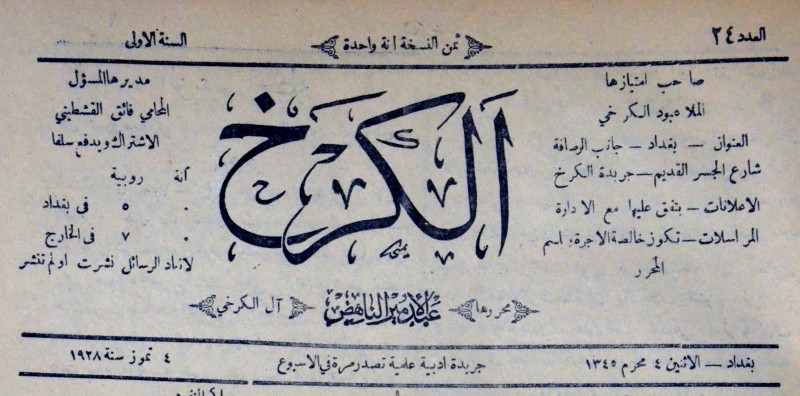 العدد ٢٤
ثمن النسخة آنة واحدة
السنة الاولى
صاحب امتيازها
الملا عبود الكرخي
العنوان — بغداد — جانب الرصافة
شارع الجسر القديم — جريدة الكرخ
الاعلانات — يتفق عليها مع الادارة
المراسلات — تكون خالصة الاجرة باسم
المحرر
الكرخ
مديرها المسؤل
المحامي فائق القشطيني
الاشتراك ويدفع سلفا
آنة روبية
٠ ٥ في بغداد
٠ ٧ في الخارج
لا تعاد الرسائل نشرت او لم تنشر
محررها عبد الامير الناهض آل الكرخي
بغداد — الاثنين ٤ محرم ١٣٤٥
جريدة ادبية علمية تصدر مرة في الاسبوع
٤ تموز سنة ١٩٢٨